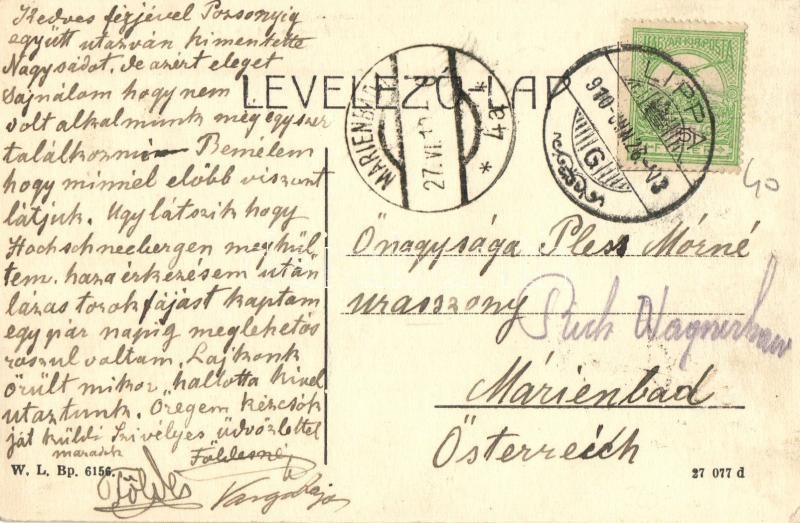 Kedves férjével Pozsonyig
együtt utazván kimentette
Nagysádot, de azért eleget
sajnálom hogy nem
volt alkalmunk még egyszer
találkozni. Remélem
hogy minnél előbb viszont
látjuk. Ugy látszik hogy
Hochschneebergen meghül-
tem, hazaérkezésem után
lázas torokfájást kaptam
egy pár napig meglehetős
rosszul voltam. Lajkonk
örült mikor hallotta kivel
utaztunk. Öregem kézcsók
ját küldi Szivélyes üdvözlettel
maradok Földesné
Földes
Varga Lajos
LEVELEZŐ-LAP
MARIENBAD
27.VI.10
* 4a *
LIPPA
910
G
MAGYAR KIR. POSTA
40
Őnagysága Pless Mórné
urasszony
Rich Wagnerhaus
Márienbad
Österreich
W. L. Bp. 6156.
27 077 d